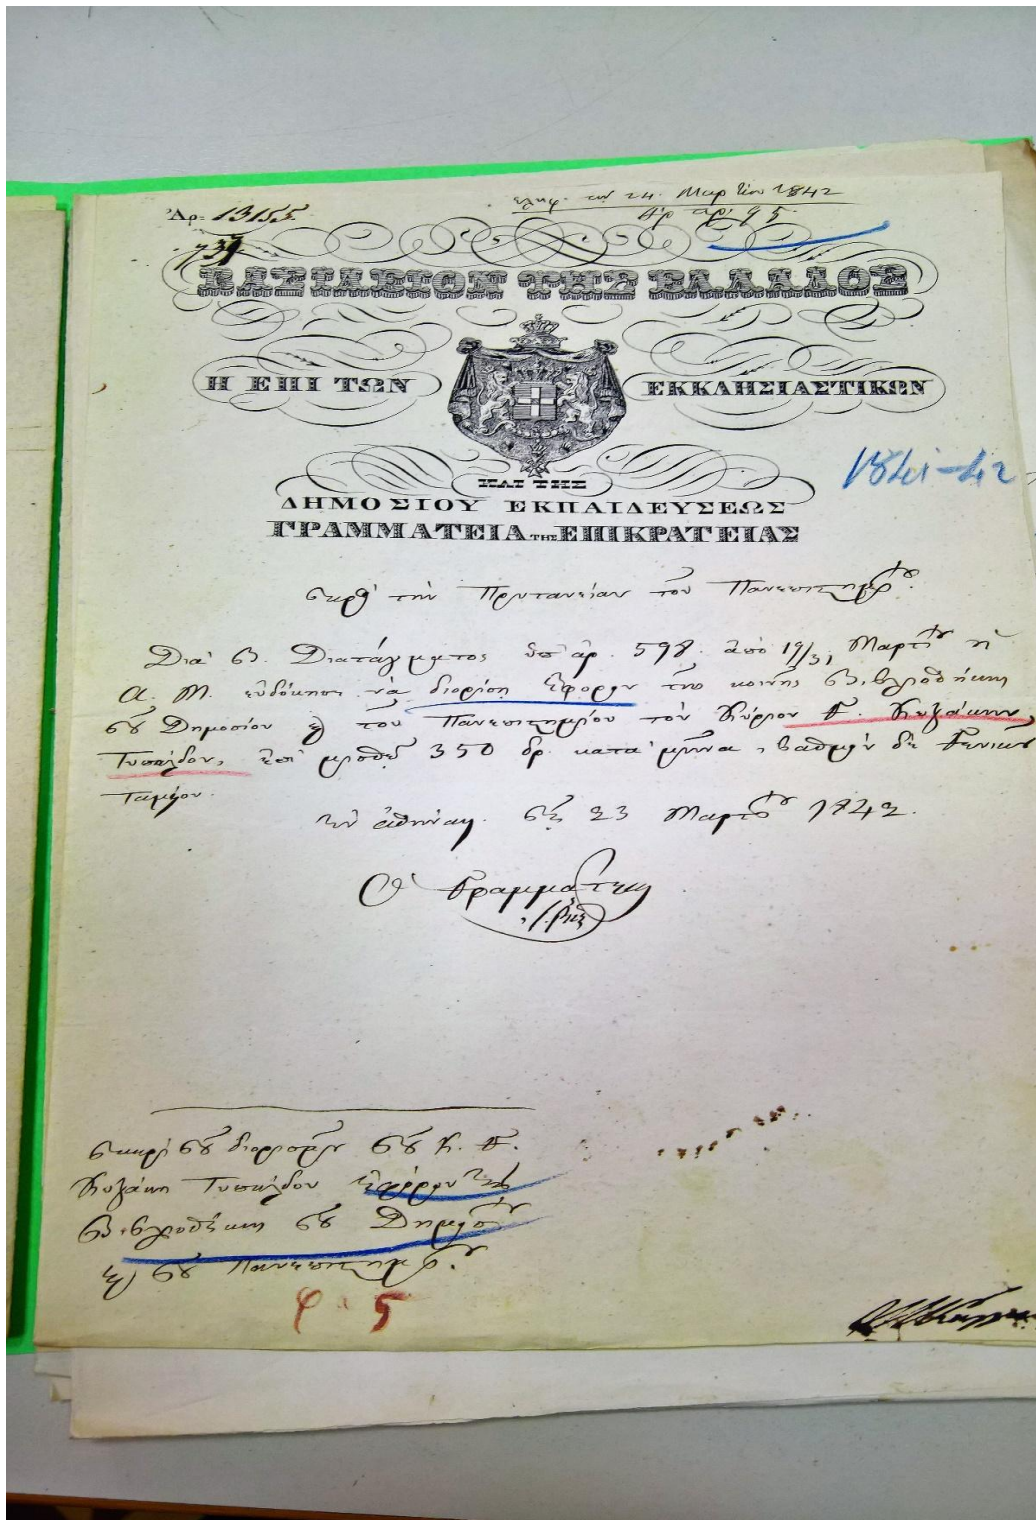 Ἀρ. 13155
ἐλήφ. τὴν 24. Μαρτίου 1842
739
Ἀρ. πρ. 95
ΒΑΣΙΛΕΙΟΝ ΤΗΣ ΕΛΛΑΔΟΣ
Η ΕΠΙ ΤΩΝ ΕΚΚΛΗΣΙΑΣΤΙΚΩΝ
1841-42
ΚΑΙ ΤΗΣ
ΔΗΜΟΣΙΟΥ ΕΚΠΑΙΔΕΥΣΕΩΣ
ΓΡΑΜΜΑΤΕΙΑ ΤΗΣ ΕΠΙΚΡΑΤΕΙΑΣ
Πρὸς τὴν Πρυτανείαν τοῦ Πανεπιστημίου.
Διὰ Β. Διατάγματος ὑπ' ἀρ. 598. ἀπὸ 19/31 Μαρτίου ἡ
Α. Μ. εὐδόκησε νὰ διορίσῃ Ἔφορον τῆς κοινῆς Βιβλιοθήκης
τοῦ Δημοσίου καὶ τοῦ Πανεπιστημίου τὸν Κύριον Γ. Κοζάκην
Τυπάλδον, ἐπὶ μισθῷ 350 δρ. κατὰ μῆνα, βαθμὸν δὲ Γενικοῦ
Ταμίου.
Ἐν Ἀθήναις τῇ 23 Μαρτίου 1842.
Ὁ Γραμματεὺς
Περὶ τοῦ διορισμοῦ τοῦ Κ. Γ.
Κοζάκη Τυπάλδου Ἐφόρου τῆς
Βιβλιοθήκης τοῦ Δημοσίου
καὶ τοῦ Πανεπιστημίου.
φ. 5